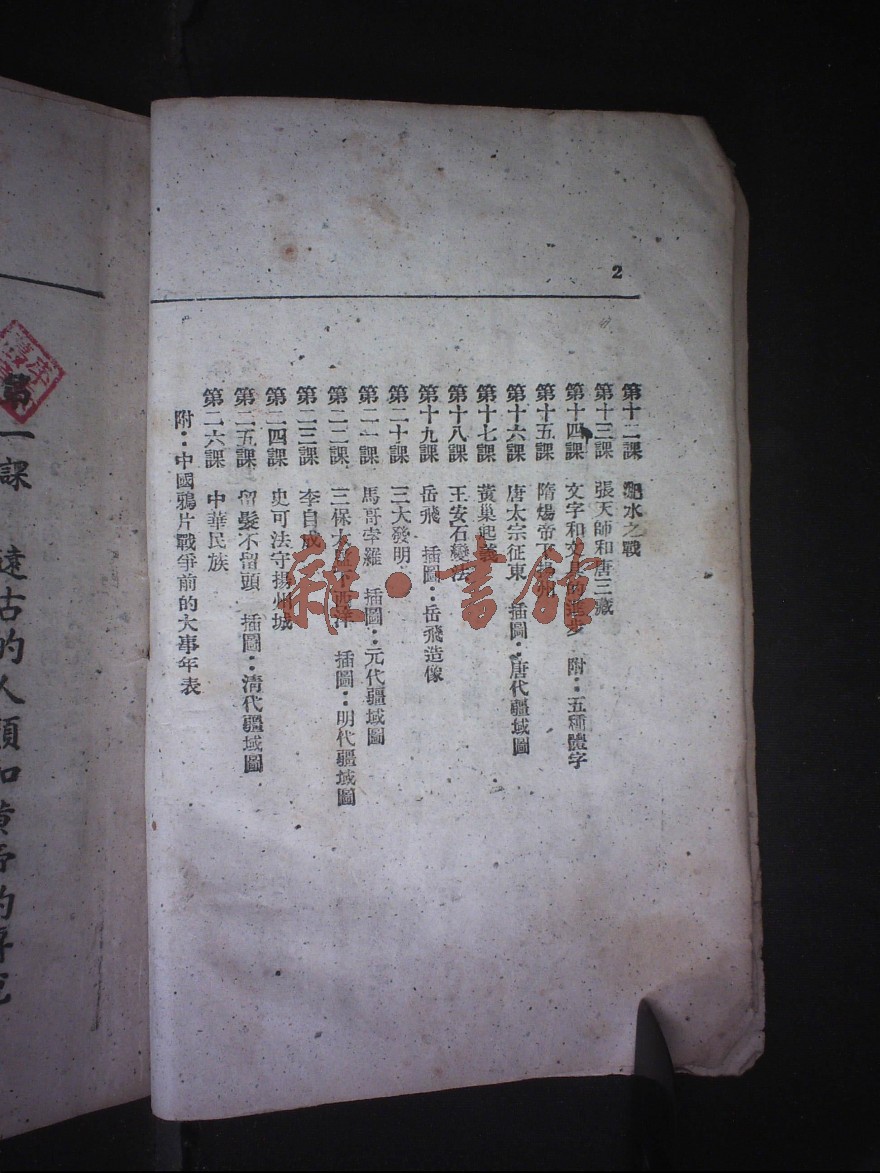 2
第十二課 淝水之戰
第十三課 張天師和唐三藏
第十四課 文字和文具的進步 附：五種體字
第十五課 隋煬帝下揚州
第十六課 唐太宗征東 插圖：唐代疆域圖
第十七課 黃巢起義
第十八課 王安石變法
第十九課 岳飛 插圖：岳飛造像
第二十課 三大發明
第二一課 馬哥孛羅 插圖：元代疆域圖
第二二課 三保太監下西洋 插圖：明代疆域圖
第二三課 李自成
第二四課 史可法守揚州城
第二五課 留髮不留頭 插圖：清代疆域圖
第二六課 中華民族
附：中國鴉片戰爭前的大事年表
雜·書館
第一課 遠古的人類和黃帝的